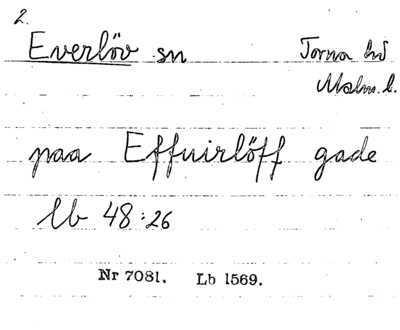 2.
Everlöv sn Torna hd
Malm. l.
paa Effuirlöff gade
lb 48:26
Nr 7081. Lb 1569.